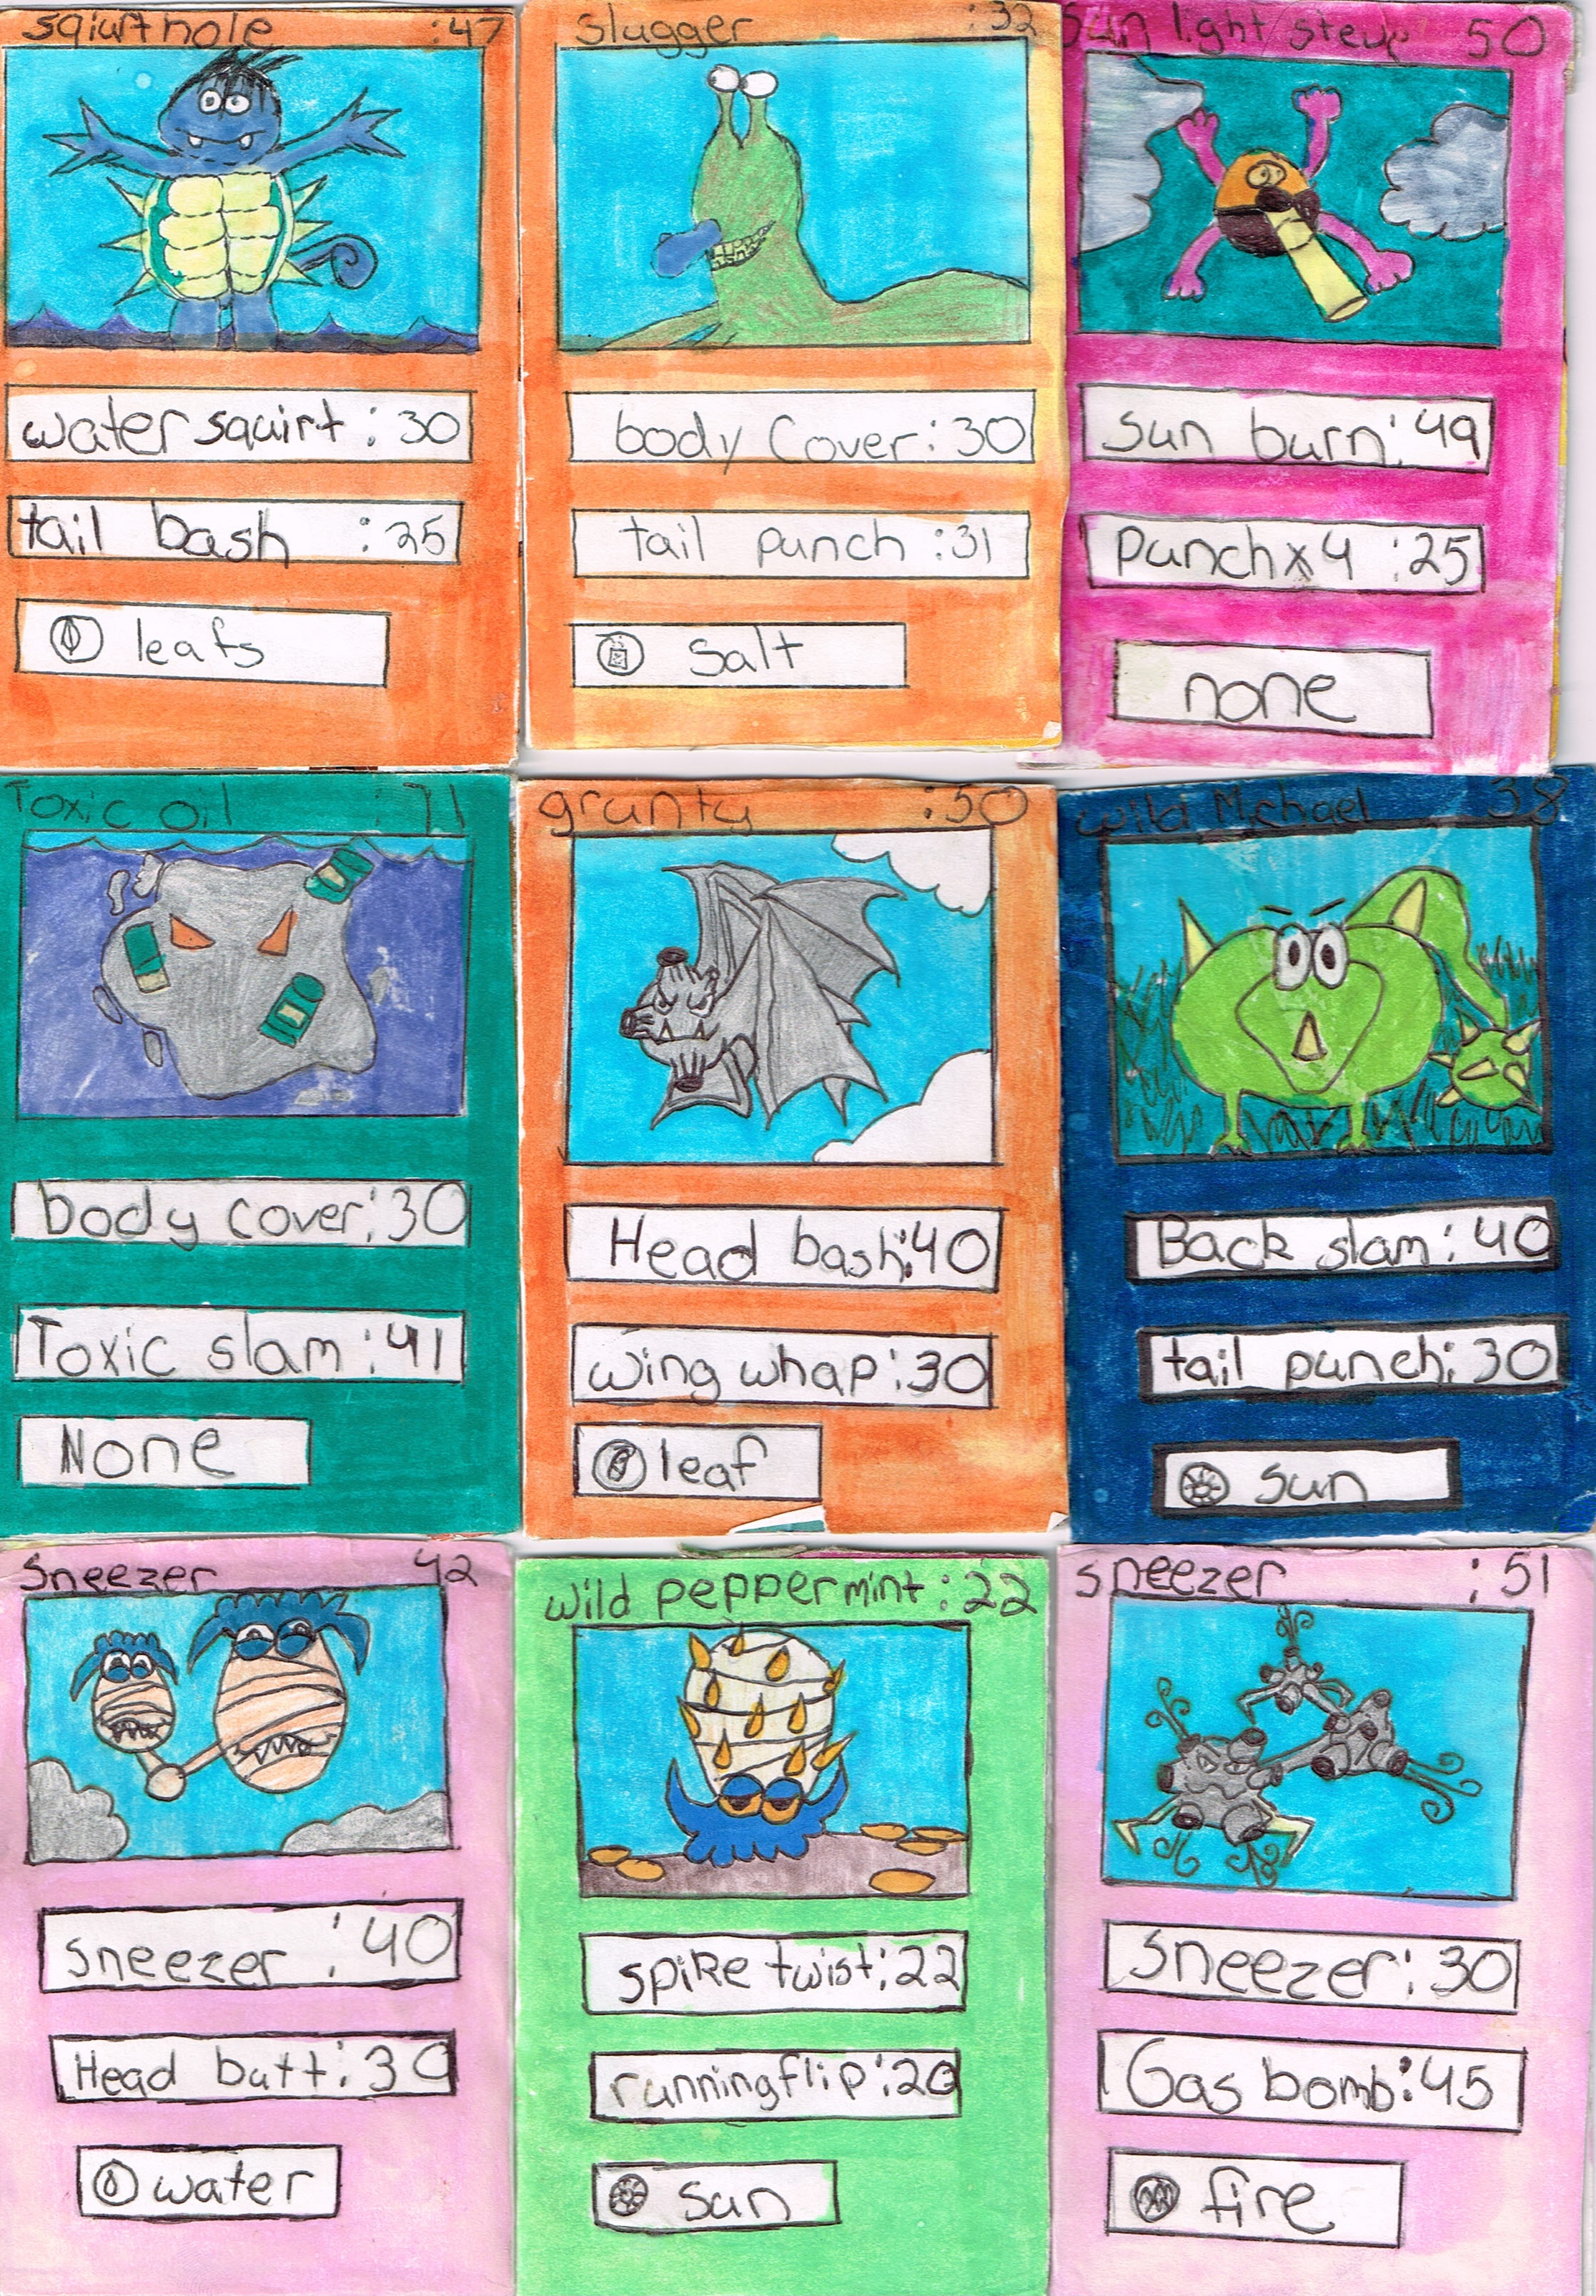 sqiurt hole :47
water squirt : 30
tail bash : 25
leafs
slugger : 32
body Cover : 30
tail punch : 31
Salt
Sun light steve 50
Sun burn : 49
Punch x 4 : 25
none
Toxic oil : 71
body cover : 30
Toxic slam : 41
None
grunty : 50
Head bash : 40
wing whap : 30
leaf
wild Michael 38
Back slam : 40
tail punch : 30
sun
Sneezer 42
sneezer : 40
Head butt : 30
water
wild peppermint : 22
spike twist : 22
running flip : 20
sun
sneezer : 51
sneezer : 30
Gas bomb : 45
fire